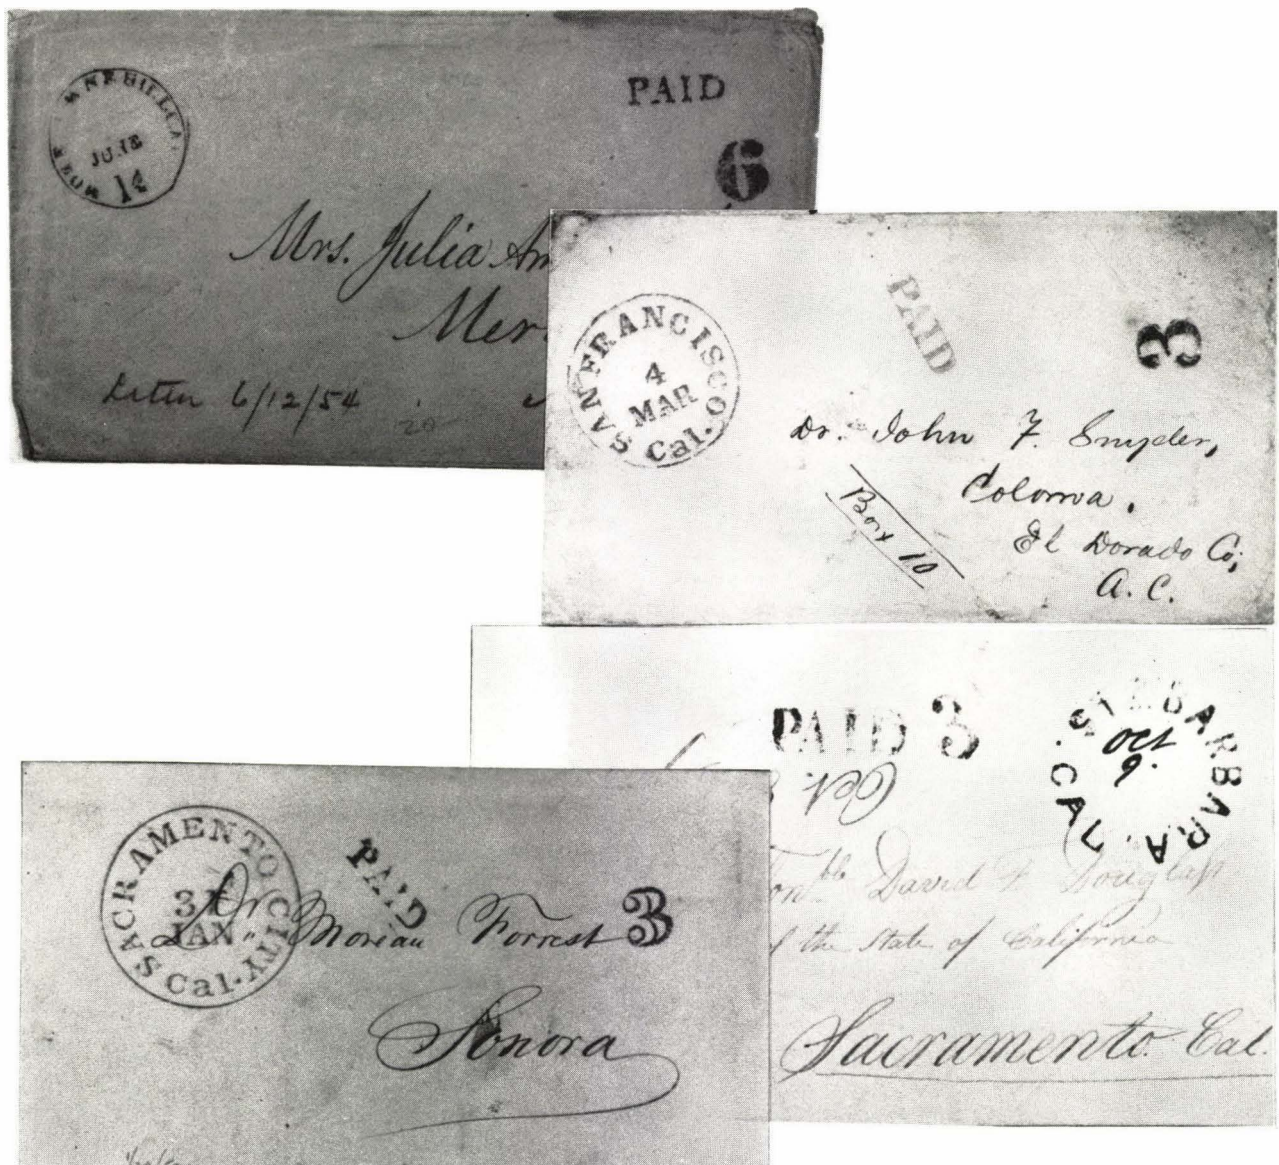 PAID
6
JUN 8
1¢
Mrs. Julia
Letter 6/12/54
20
SAN FRANCISCO
4
MAR
Cal.
PAID
3
Dr. John F. Snyder,
Coloma.
El Dorado Co;
A. C.
Box 10
PAID 3
STA BARBARA.
CAL.
Oct
9.
David F. Douglass
the State of California
Sacramento. Cal.
SACRAMENTO CITY
31
JAN
Cal.
PAID
3
Dr Moreau Forrest
Sonora